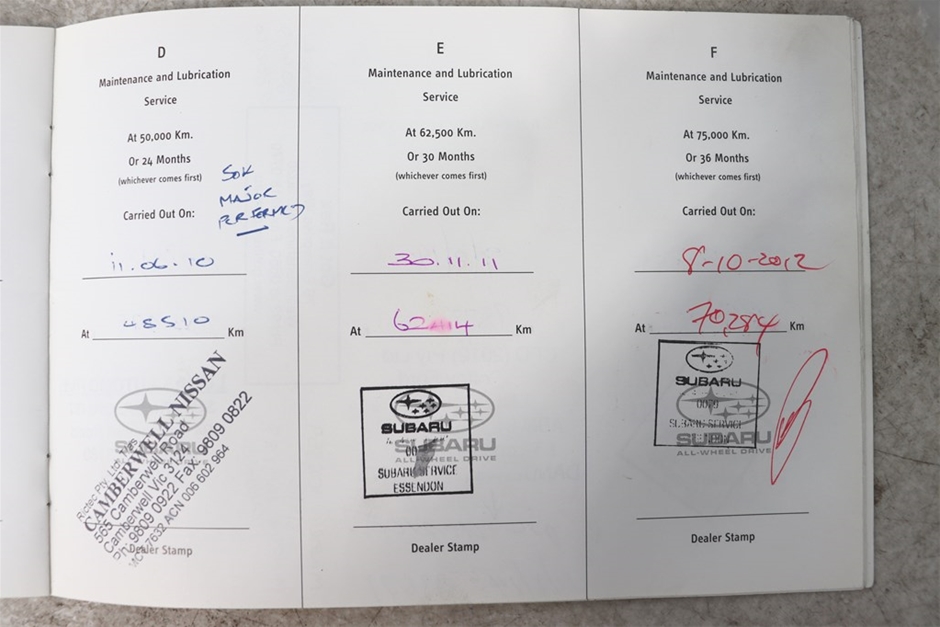 D
Maintenance and Lubrication
Service
At 50,000 Km.
Or 24 Months
(whichever comes first)
50K
MAJOR
PERFORMED
Carried Out On:
11.06.10
At 48510 Km
Richtec Pty Ltd
CAMBERWELL NISSAN
565 Camberwell Road
Camberwell Vic 3124
Ph: 9809 0922 Fax: 9809 0822
7632 ACN 006 602 964
Dealer Stamp
E
Maintenance and Lubrication
Service
At 62,500 Km.
Or 30 Months
(whichever comes first)
Carried Out On:
30.11.11
At Km
SUBARU
SUBARU SERVICE
ESSENDON
SUBARU
ALL-WHEEL DRIVE
Dealer Stamp
F
Maintenance and Lubrication
Service
At 75,000 Km.
Or 36 Months
(whichever comes first)
Carried Out On:
8-10-2012
At 70,284 Km
SUBARU
SUBARU SERVICE
SUBARU
ALL-WHEEL DRIVE
Dealer Stamp